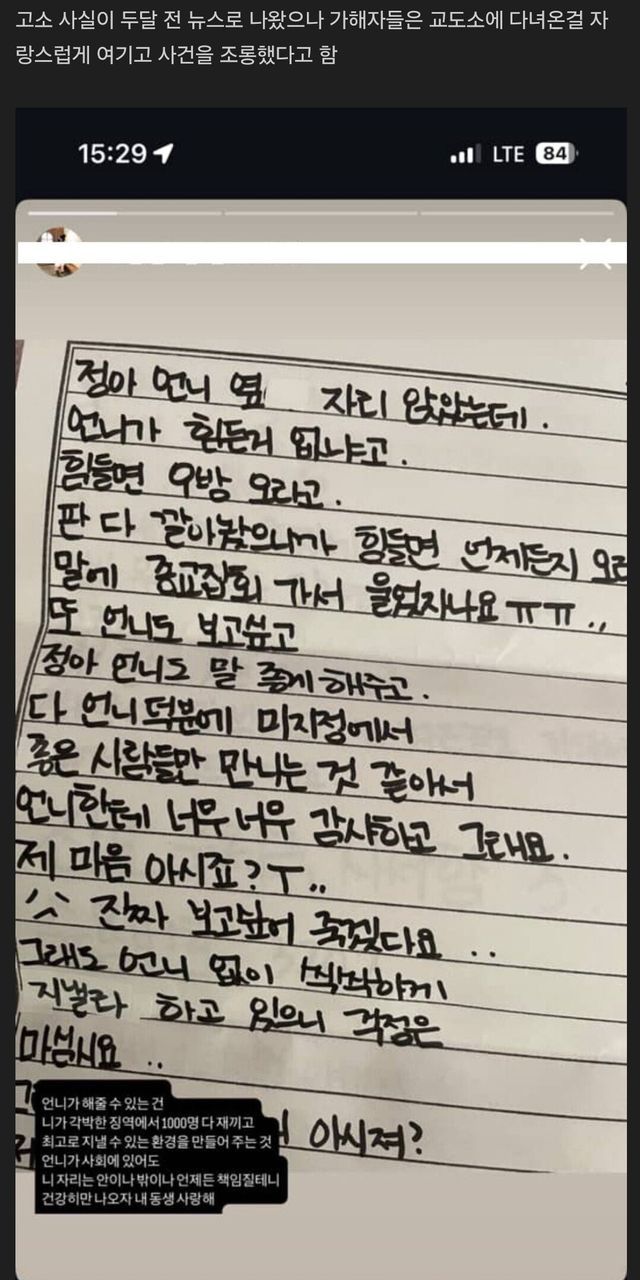 고소 사실이 두달 전 뉴스로 나왔으나 가해자들은 교도소에 다녀온걸 자
랑스럽게 여기고 사건을 조롱했다고 함
15:29
LTE 84
정아 언니 옆 자리 앉았는데.
언니가 힘든거 없냐고.
힘들면 9방 오라고.
판 다 깔아놨으니까 힘들면 언제든지 오라
말에 종교집회 가서 울었자나요 ㅠㅠ..
또 언니도 보고싶고
정아 언니도 말 좋게 해주고.
다 언니 덕분에 미지정에서
좋은 사람들만 만나는 것 같아서
언니한테 너무너무 감사하고 그래요.
제 마음 아시죠? ㅜ..
진짜 보고싶어 죽겠다요 ..
그래도 언니 없이 씩씩하게
지낼라 하고 있으니 걱정은
마십시요 ..
아시져?
언니가 해줄 수 있는 건
니가 각박한 징역에서 1000명 다 재끼고
최고로 지낼 수 있는 환경을 만들어 주는 것
언니가 사회에 있어도
니 자리는 안이나 밖이나 언제든 책임질테니
건강히만 나오자 내 동생 사랑해